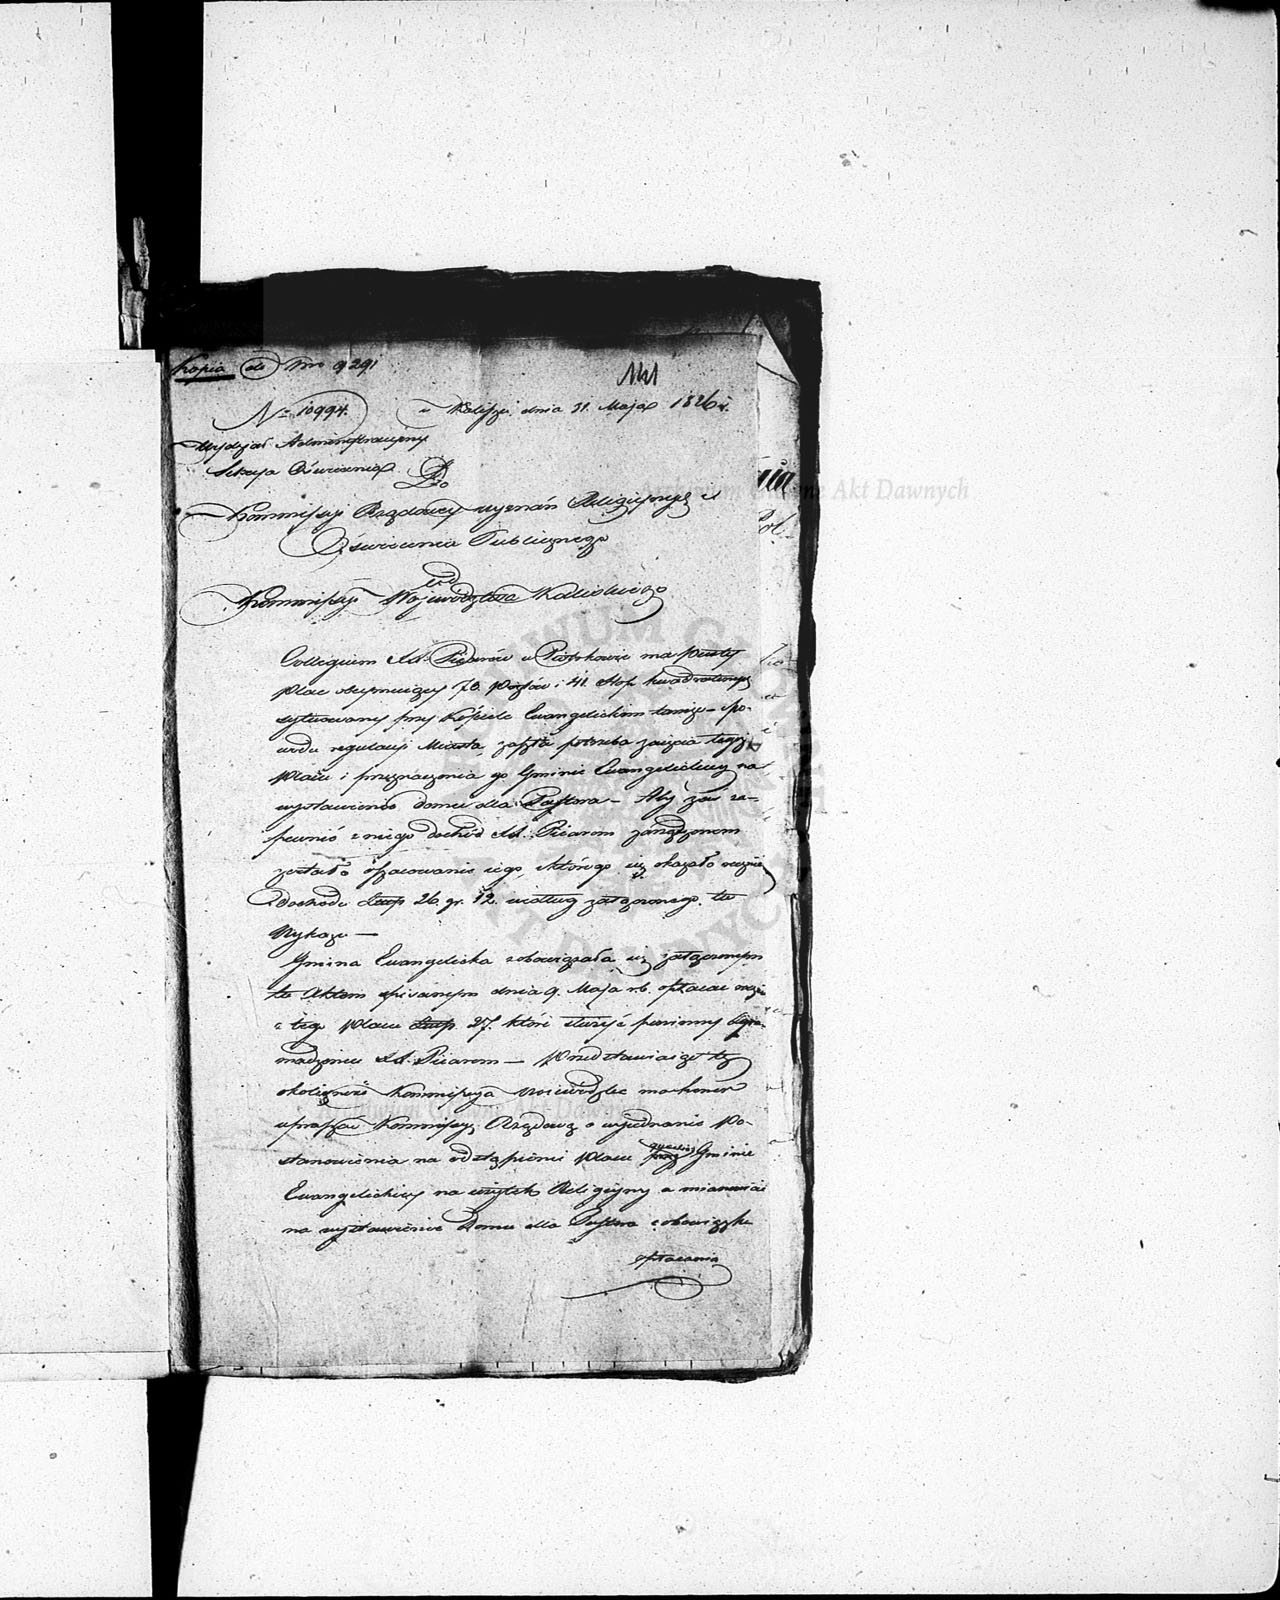 Kopia do Nro 9291
N= 10994. w Kaliszu dnia 31. Maja 1826 r.
Wydział Administracyjny
Sekcya Oświecenia
Do
Kommissyi Rządowey wyznań Religijnych i
Oświecenia Publicznego
od
Kommissyi Wojewodztwa Kaliskiego
Collegium XX. Piiarów w Piotrkowie ma pusty
plac obeymuiący 70. prętów i 41. Stop kwadratowych
sytuowany przy Kościele Ewangelickim tamże – Po-
wodu regulacyi Miasta, zaszła potrzeba zaięcia tegoż
placu i przeznaczenia go Gminie Ewangelickiey na
wystawienie domu dla Pastora – Aby zaś za-
pewnić z niego dochód XX. Piiarom zarządzonem
zostało oszacowanie iego, z którego się okazało rocznie
dochodu Złp 26. gr. 12. według załączonego tu
Wykazu —
Gmina Ewangelicka zobowiązała się załączonym
tu Aktem spisanym dnia 9. Maja r.b. opłacać rocznie
z tego placu Złp. 27. które służyć powinny Zgro-
madzeniu XX. Piiarom — Przedstawiaiąc tę
okoliczność Kommissya Woiewódzka ma honor
upraszać Kommissyą Rządową o wyiednanie Po-
stanowienia na odstąpienie placu Gminie
Ewangelickiey na użytek Religijny a mianowicie
na wystawienie Domu dla Pastora z obowiązkiem
opłacania
Archiwum Główne Akt Dawnych